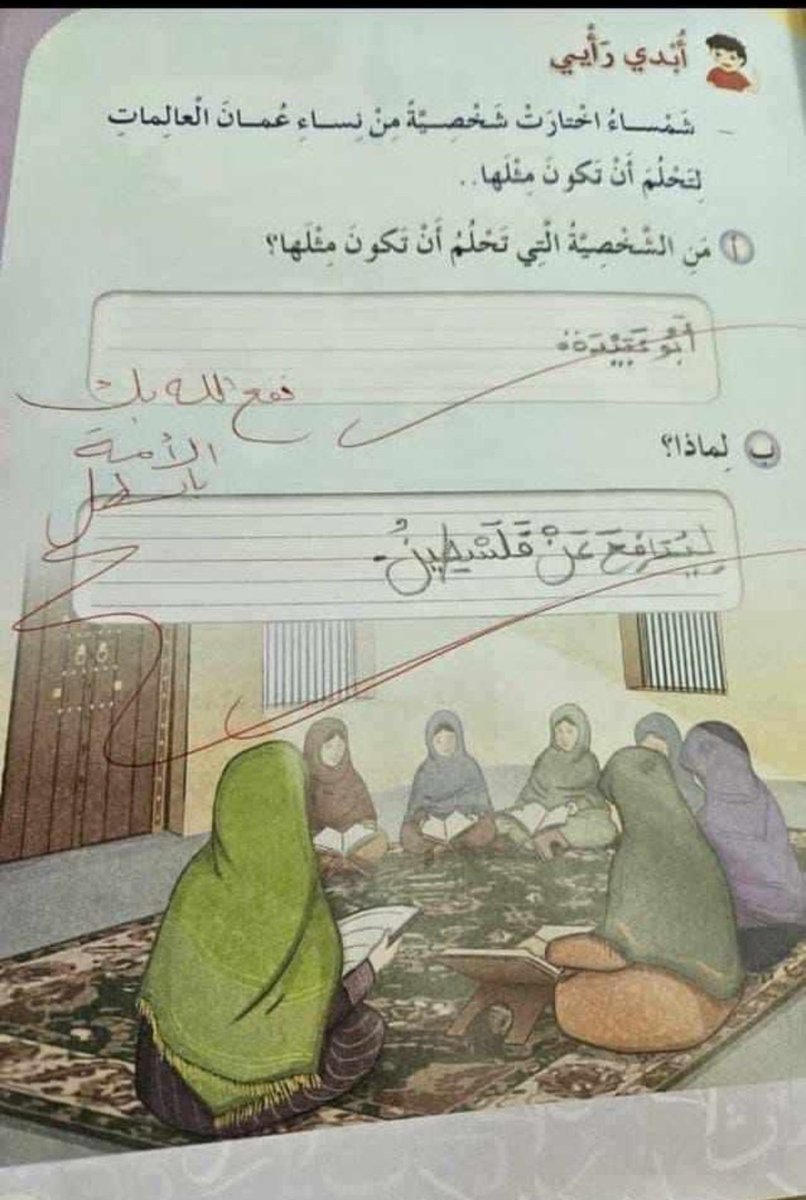 أُبْدي رَأْيي
– شَمْسـاءُ اخْتارَتْ شَخْصِيَّةً مِنْ نِساءِ عُمـانَ الْعالِماتِ
لِتَحْلُمَ أَنْ تَكونَ مِثْلَها..
أ مَنِ الشَّخْصِيَّةُ الَّتي تَحْلُمُ أَنْ تَكونَ مِثْلَها؟
أَبُو عُبَيْدَة
نفع الله بك
الأمة
يا بطل
ب لِماذا؟
لِيُدَافِعَ عَنْ فَلَسْطِينُ.